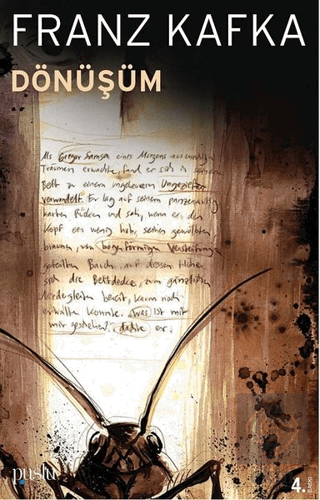 FRANZ KAFKA
DÖNÜŞÜM
Als Gregor Samsa eines Morgens aus
Träumen erwachte, fand er sich in seinem
Bett zu einem ungeheueren Ungeziefer
verwandelt. Er lag auf seinem panzerartig
harten Rücken und sah, wenn er den
Kopf ein wenig hob, seinen gewölbten
braunen, von bogenförmigen Versteifungen
geteilten Bauch, auf dessen Höhe
sich die Bettdecke, zum gänzlichen
Niedergleiten bereit, kaum noch
erhalten konnte. »Was ist mit
mir geschehen?« dachte er.
puslu
4.